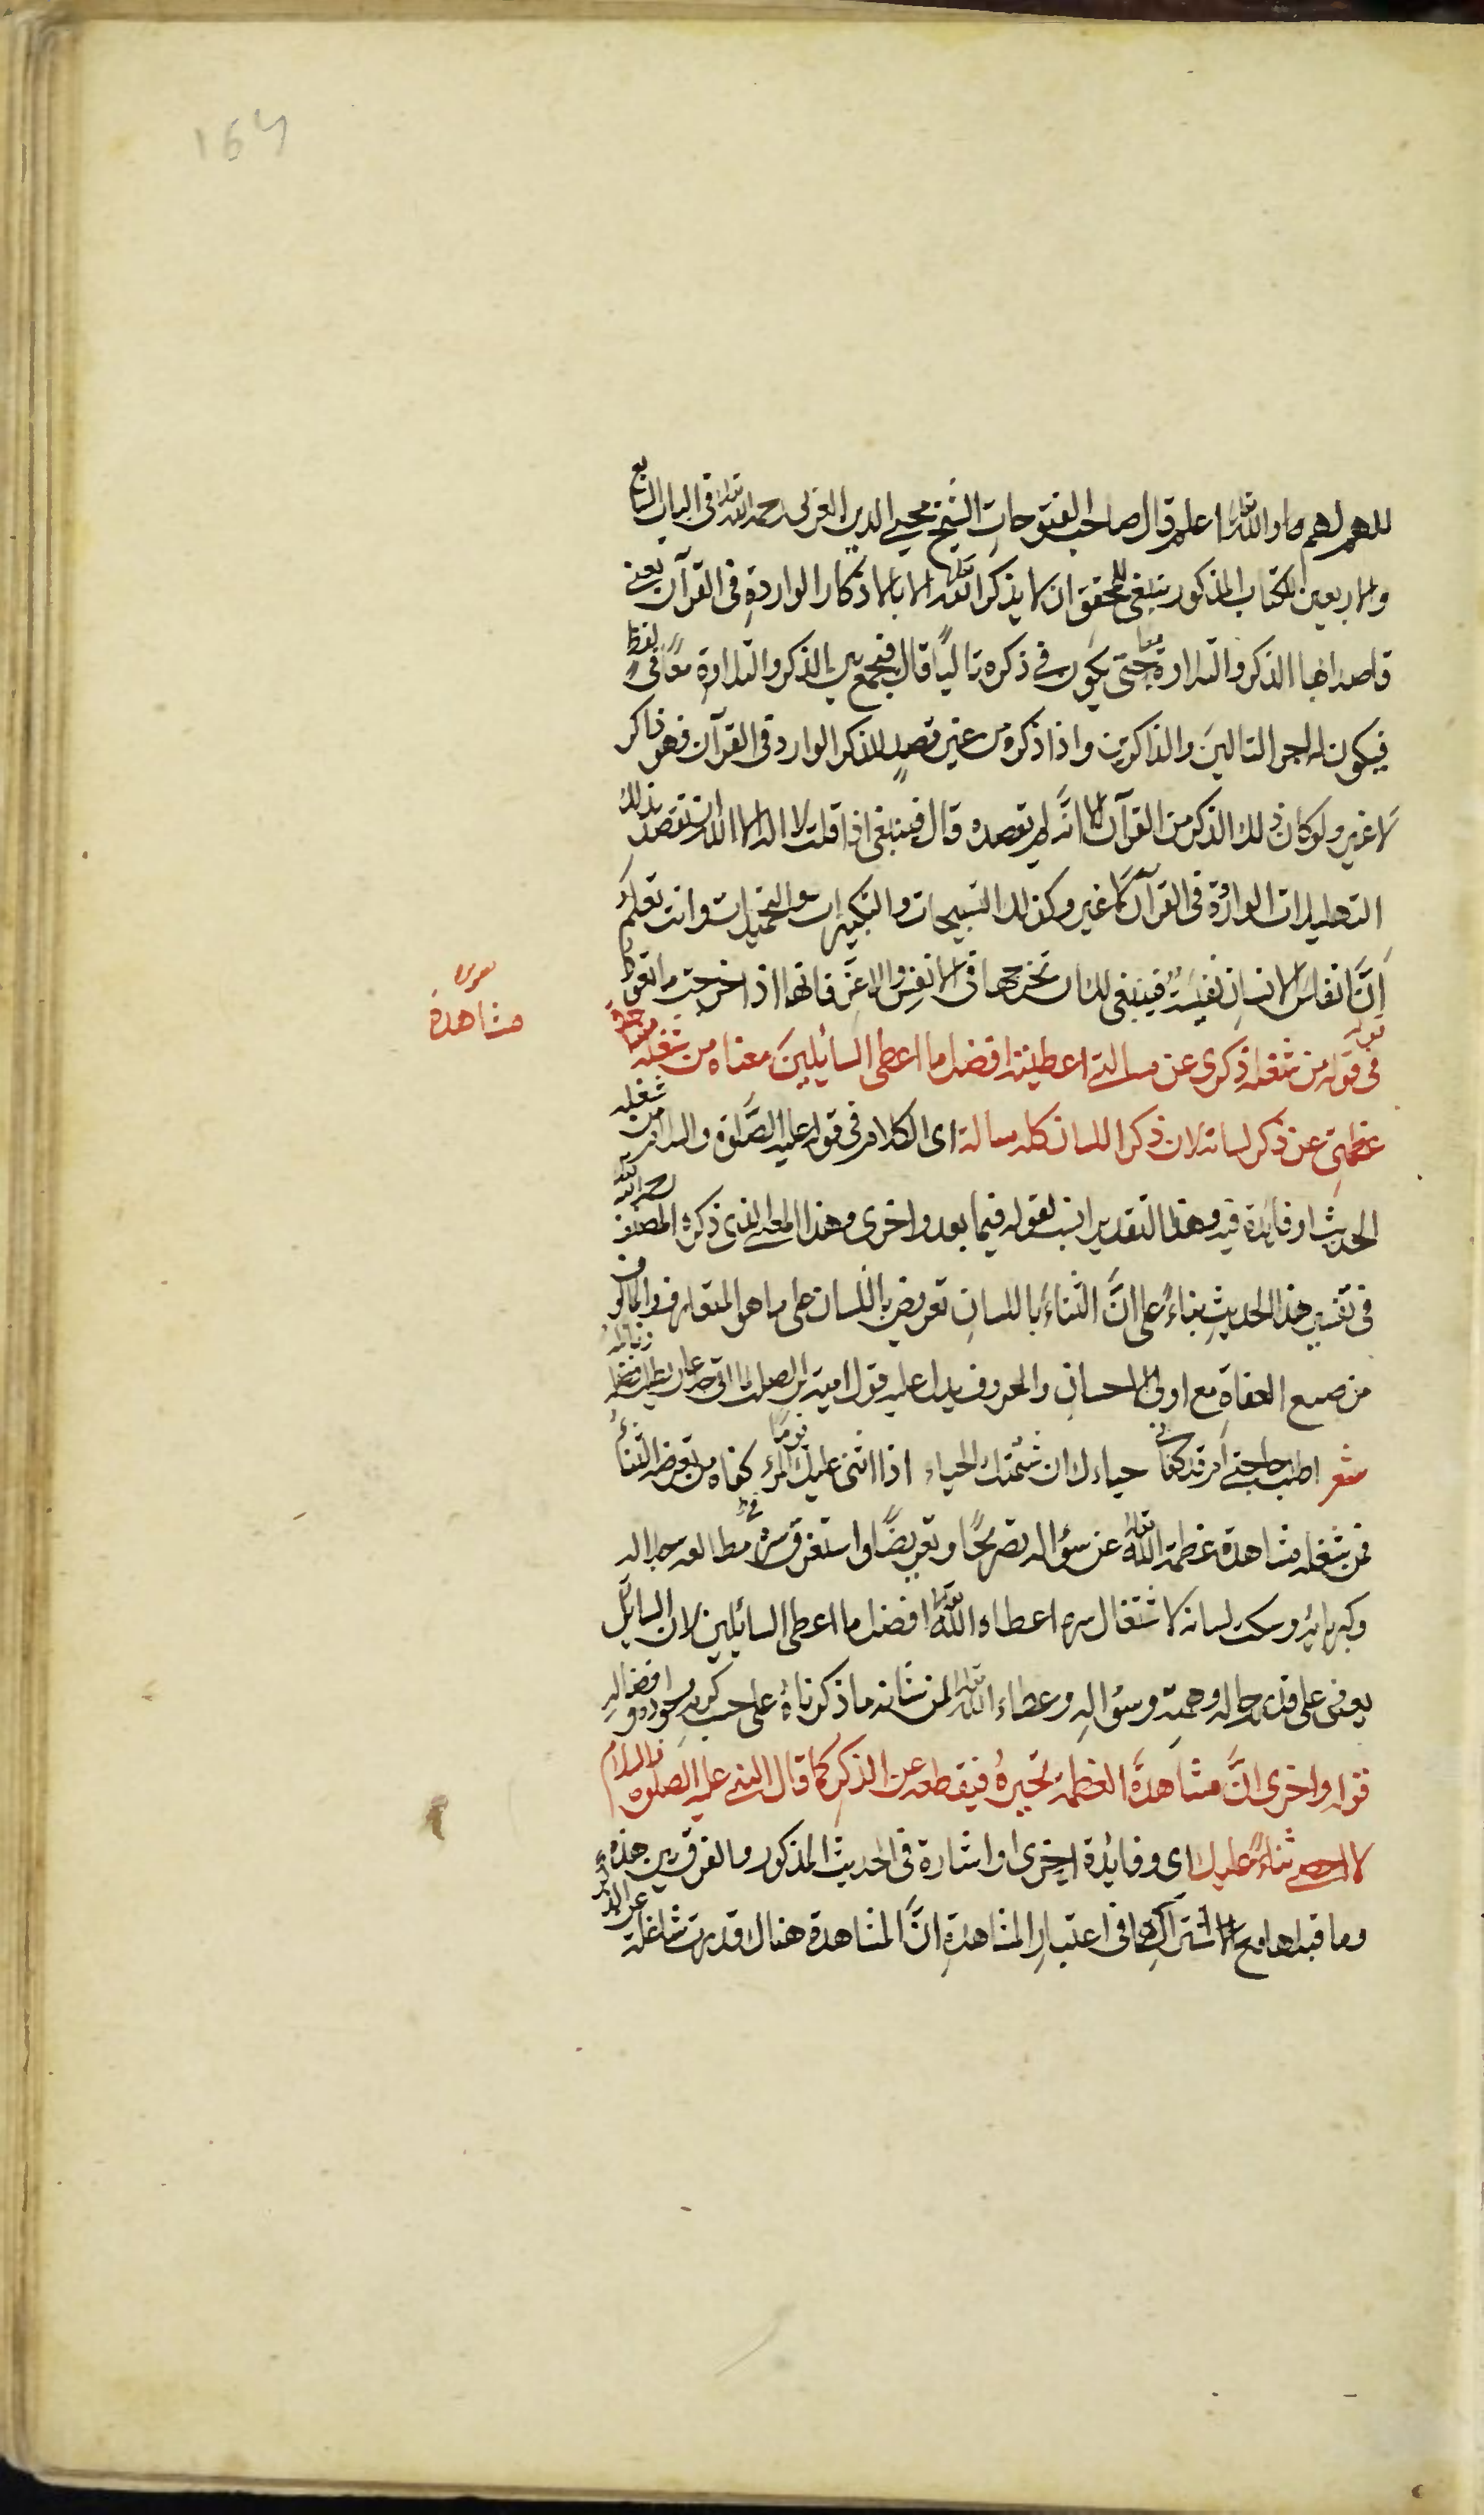 164
للهم لهم واد والله تعالى اعلم قال صاحب الفتوحات الشيخ محيي الدين العربى رحمه الله تعالى فى الباب السابع
والاربعين الكتاب المذكور ينبغى للمحقق ان لا يذكر الله تعالى الا بالاذكار الواردة فى القرآن يعنى
قاصدا بها الذكر والتلاوة معا حتى يكون فى ذكره تاليًا قال فيجمع بين الذكر والتلاوة معًا فى لفظ
فيكون له اجر التالين والذاكرين واذا ذكره من غير قصدٍ للذكر الوارد فى القرآن فهو ذاكر
لا غير ولو كان ذلك الذكر من القرآن الا انّه لم يقصده وقال فينبغى اذا قلت لا اله الا الله ان تقصد بذلك
التهليلات الواردة فى القرآن لا غير وكذلك التسبيحات والتكبيرات والتحميدات وانت تعلم
انّ انفاس الانسان نفيسة فينبغى لك ان تخرجها فى الانفس والاعز فانها اذا خرجت ما تعود
فى قوله تعالى من شغله ذكرى عن مسالتى اعطيته افضل ما اعطى السائلين معناه من شغله مشاهدة
سوى
مشاهدة
عظمتى عن ذكر لسانه لان ذكر اللسان كله مسالة اى الكلام فى قوله عليه الصلوة والسلام من شغله
الحديث او فائدة فيه وهذا التقدير انسب لقوله فيما بعد واخرى وهذا المعنى الذى ذكره المصنف رحمه الله تعالى
فى تفسير هذا الحديث بناءً على انّ الثناء باللسان تعريض اللسان على ما هو المتعارف
من صنيع العفاة مع اولى الاحسان والمعروف يدل عليه قول امية ابن الصلت لما اتى جدعان يطلب فضله
شعر اطلب حاجتى ام قد كفانى حياءك ان شيمتك الحياء اذا اثنى عليك المرء يومًا كفاه من تعرضه الثناء
فمن شغله مشاهدة عظمة الله تعالى عن سؤاله تصريحًا وتعريضًا واستغرق سره فى مطالعه جلاله
وكبريائه وسكت لسانه لاشتغال سره اعطاه الله تعالى افضل ما اعطى السائلين لان السائل
يعطى على قدر حاله وهمته وسؤاله وعطاء الله تعالى لمن شانه ما ذكرناه على حسب كرمه وجوده وافضاله
قوله واخرى انّ مشاهدة العظمة تحيره فيقطعه عن الذكر كما قال النبى عليه الصلوة والسلام
لا احصى ثناءً عليك اى وفائدة اخرى او اشارة فى الحديث المذكور والفرق بين هذه
وما قبلها مع الاشتراك فى اعتبار المشاهدة انّ المشاهدة هناك قد مرت شاغلة عن الذكر